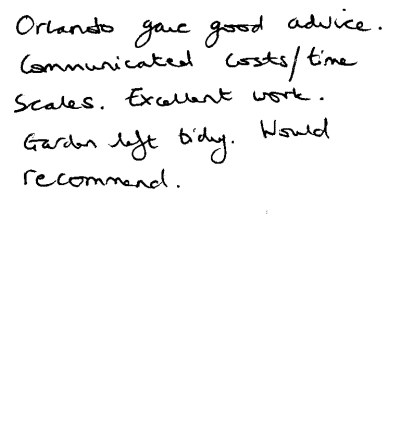 Orlando gave good advice.
Communicated costs/time
scales. Excellent work.
Garden left tidy. Would
recommend.